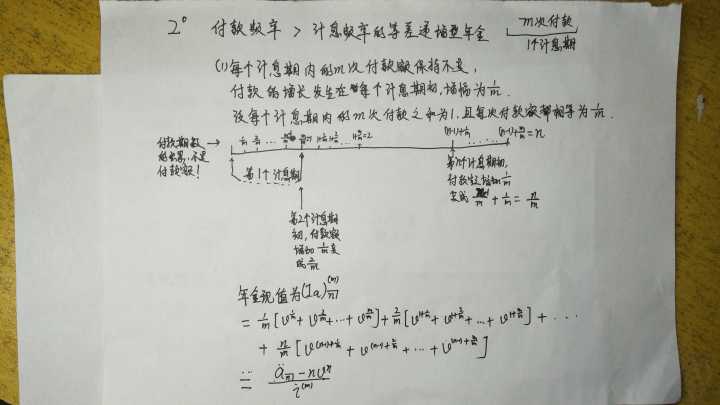 2° 付款频率 > 计息频率的等差递增型年金 m次付款 / 1个计息期
(1) 每个计息期内的m次付款额保持不变,
付款的增长发生在每个计息期初,增幅为1/m.
设每个计息期内的m次付款之和为1,且每次付款额都相等为1/m.
付款期数的长第,不是付款额!
1/m 2/m ... m/m=1 1+1/m 1+2/m ... 1+m/m=2 (n-1)+1/m ...... (n-1)+m/m=n
第1个计息期
第2个计息期初,付款额增加1/m变成2/m
第n个计息期初,
付款又增加1/m
变成 + 1/m = n/m
年金现值为(Ia)^(m)_n┐
= 1/m [v^(1/m) + v^(2/m) + ... + v^(m/m)] + 2/m [v^(1+1/m) + v^(1+2/m) + ... + v^(1+m/m)] + ...
+ n/m [v^((n-1)+1/m) + v^((n-1)+2/m) + ... + v^((n-1)+m/m)]
= (ä_n┐ - nv^n) / i^(m)